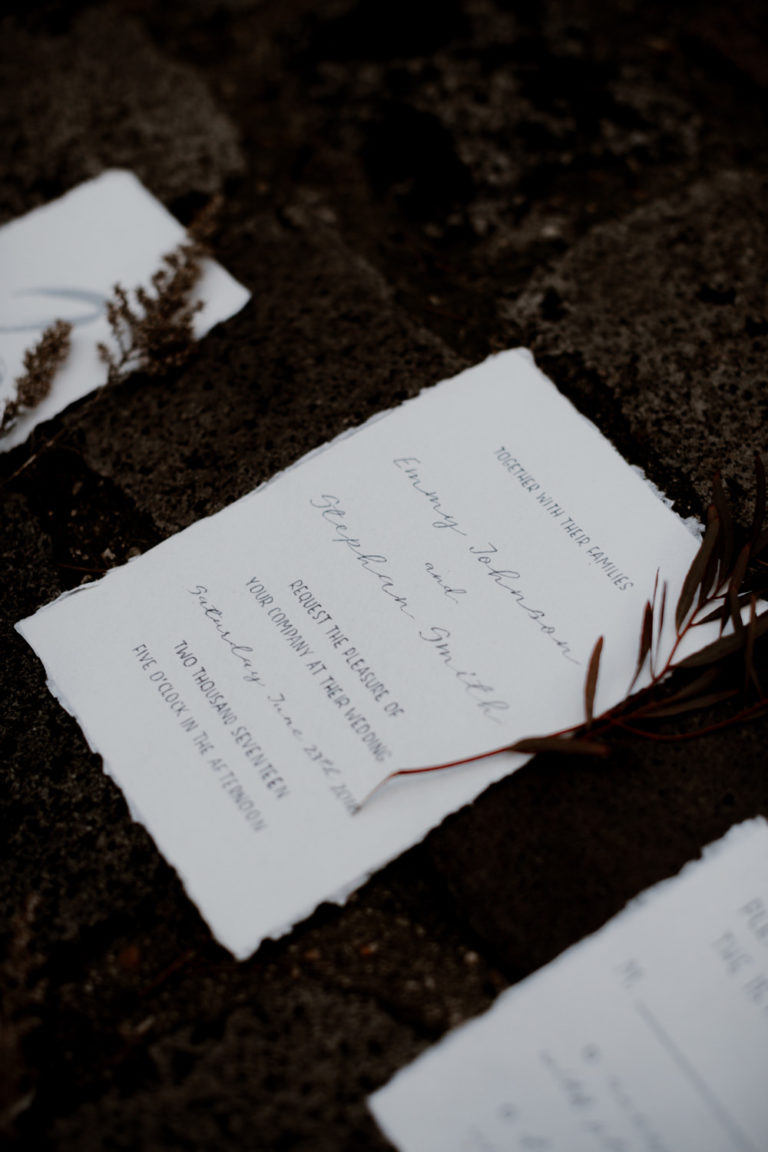 TOGETHER WITH THEIR FAMILIES
Emmy Johnson
and
Stephan Smith
REQUEST THE PLEASURE OF
YOUR COMPANY AT THEIR WEDDING
Saturday June 23rd
TWO THOUSAND SEVENTEEN
FIVE O'CLOCK IN THE AFTERNOON
M